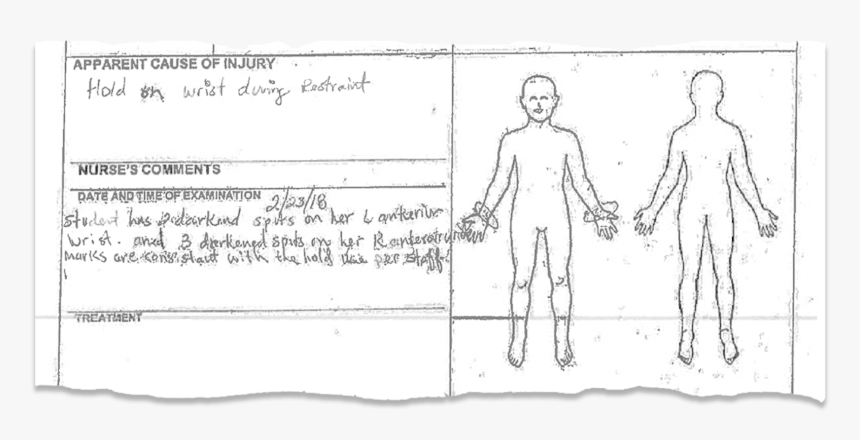 APPARENT CAUSE OF INJURY
Hold on wrist during Restraint
NURSE'S COMMENTS
DATE AND TIME OF EXAMINATION 2/23/18
Student has darkend spots on her L anterior
wrist. and 3 darkened spots on her R anterior
marks are consistant with the hold per staff
TREATMENT